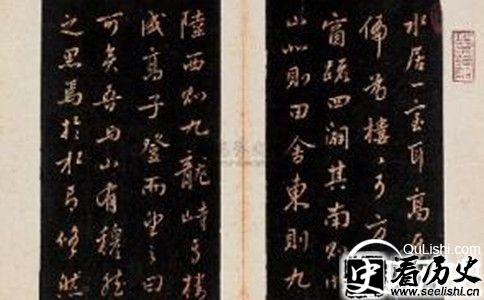 水居一室耳高
偏為樓樓可方
窗疏四闢其南則湖
山北則田舍東則九
陸西則九龍峙焉樓
成高子登而望之曰
可矣吾于山有穆然
之思焉於水有悠然
QuLishi.com
史 看历史
www.seelishi.cn